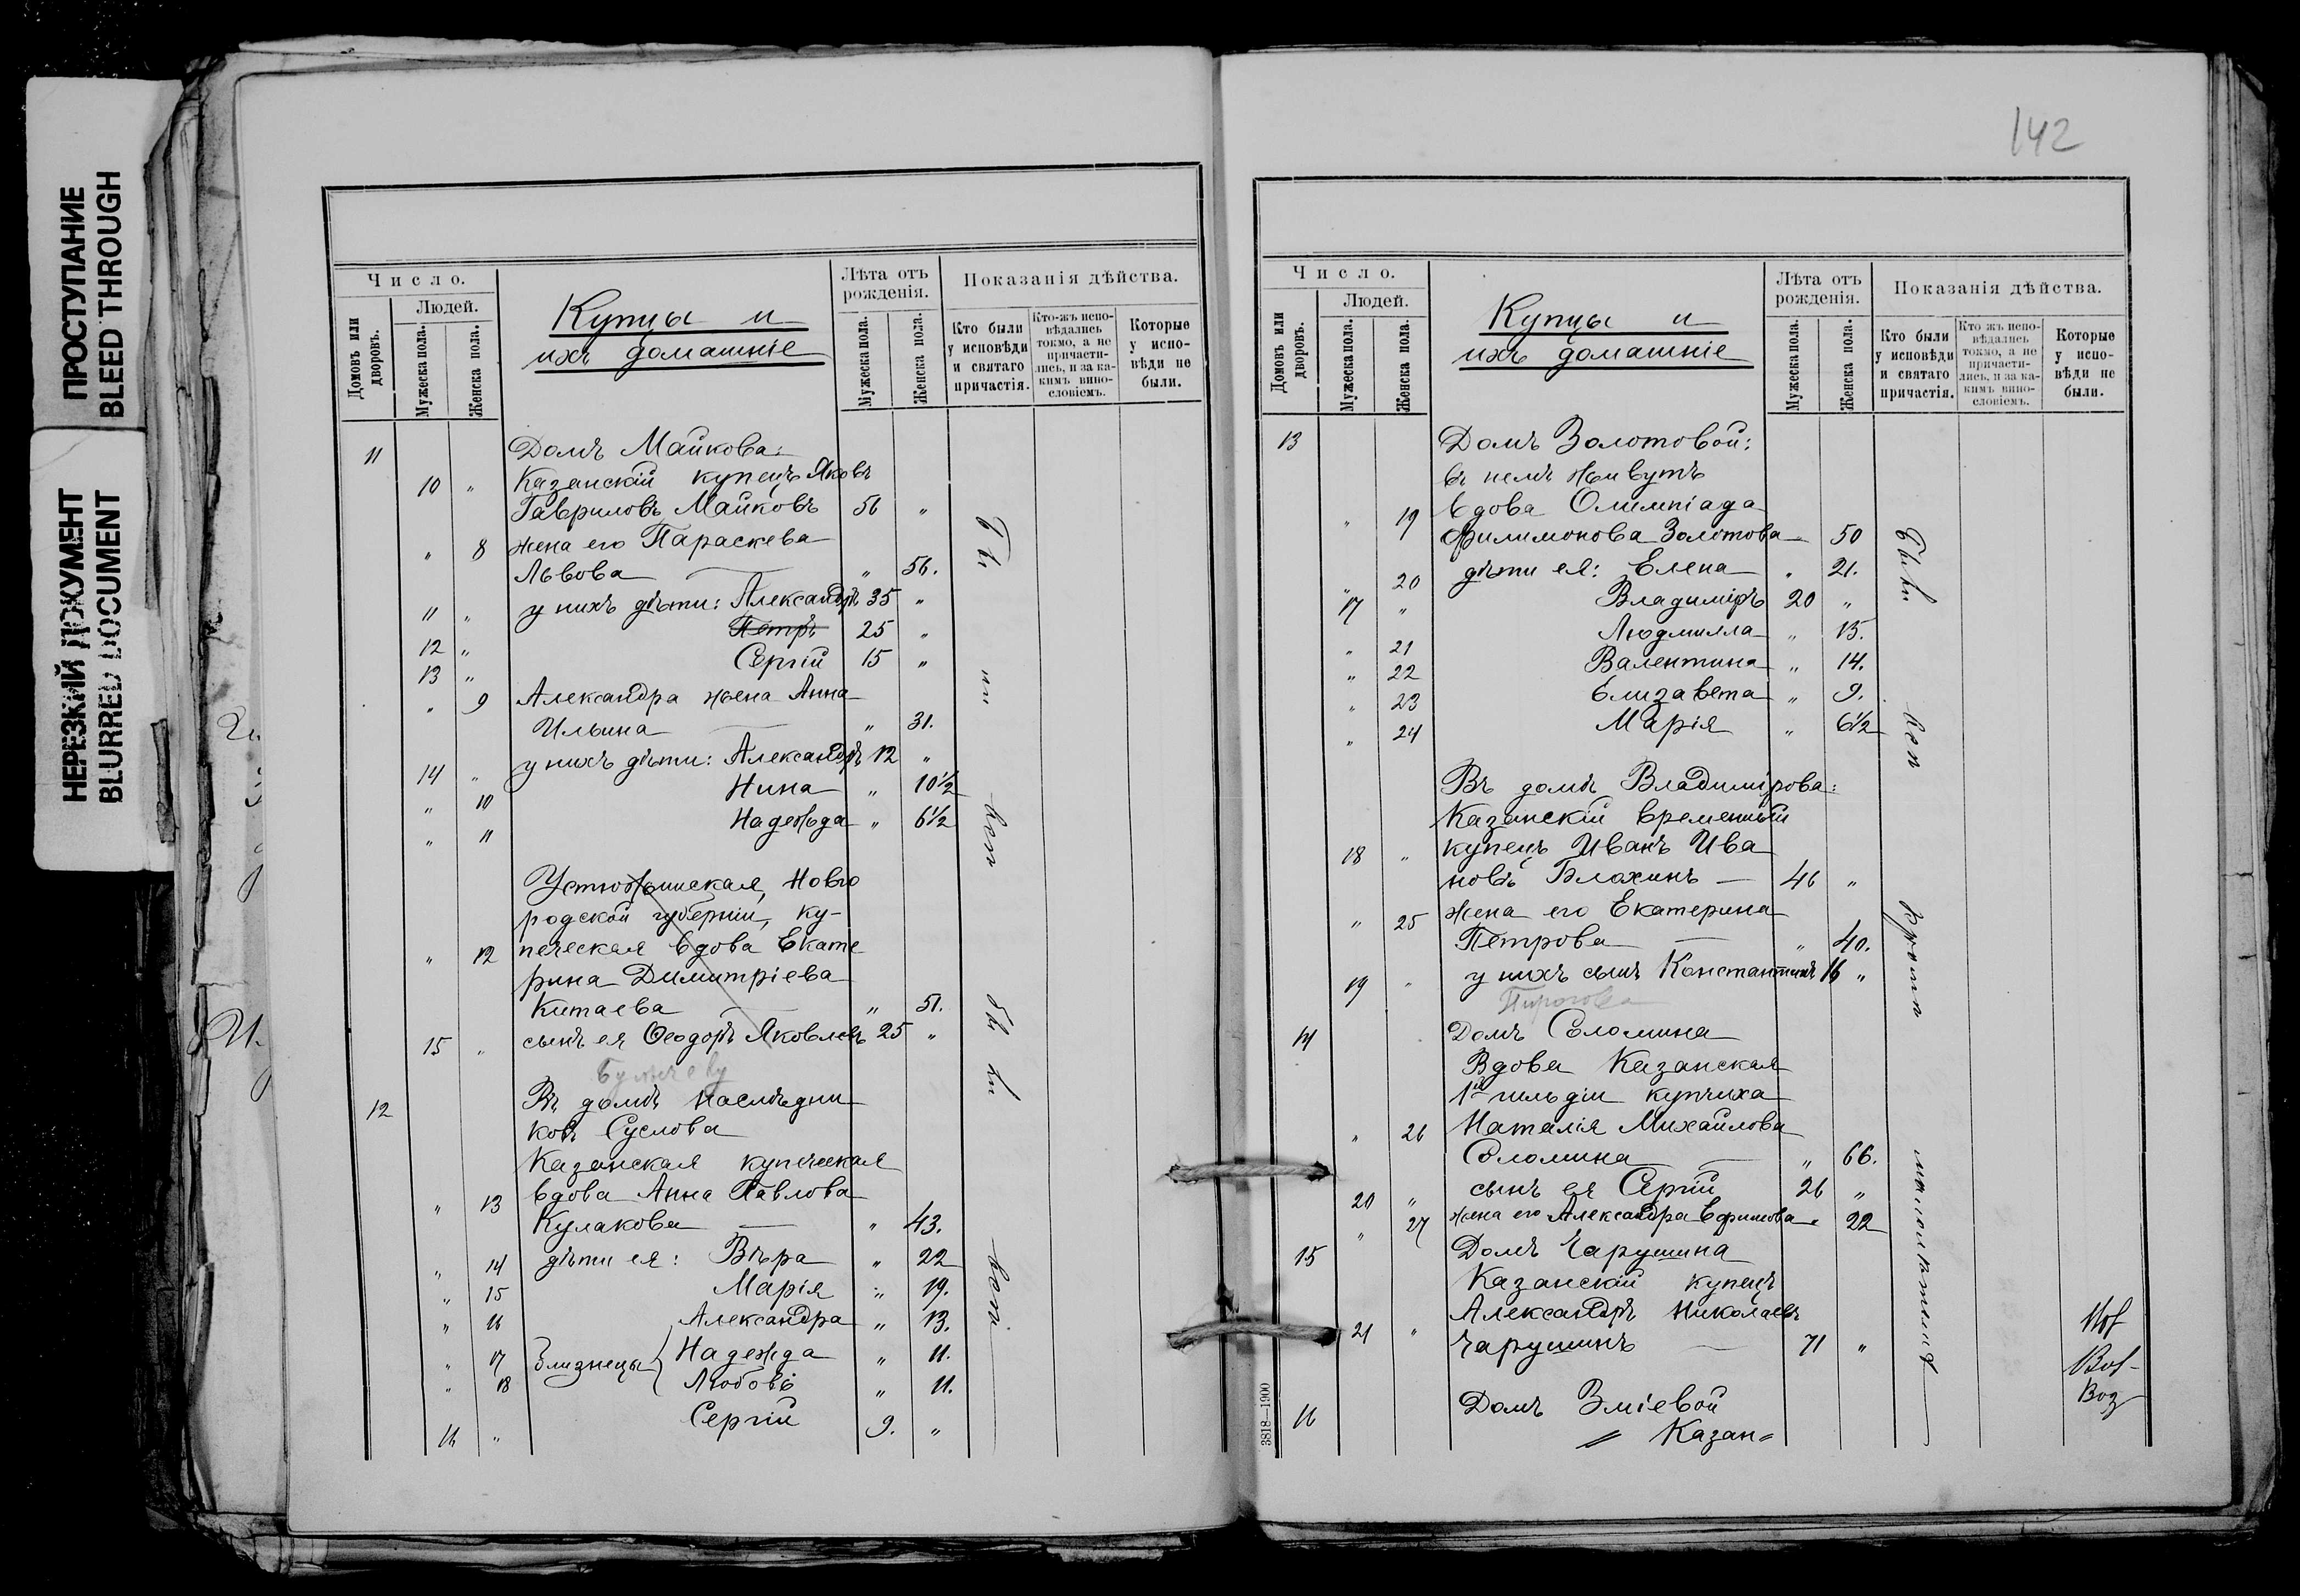 ПРОСТУПАНИЕ
BLEED THROUGH
НЕРЕЗКИЙ ДОКУМЕНТ
BLURRED DOCUMENT
Число.
Людей.
Домовъ или дворовъ.
Мужеска пола.
Женска пола.
Купцы и
ихъ домашніе
Лѣта отъ рожденія.
Мужеска пола.
Женска пола.
Показанія дѣйства.
Кто были у исповѣди и святаго причастія.
Кто-жъ исповѣдались токмо, а не причастились, и за какимъ винословіемъ.
Которые у исповѣди не были.
11 Домъ Майкова:
10 " Казанскій купецъ Яковъ
Гавриловъ Майковъ 56 "
" 8 жена его Параскева
Львова " 56.
11 " у нихъ дѣти: Александръ 35 "
12 " Петръ 25 "
13 " Сергій 15 "
" 9 Александра жена Анна
Ильина " 31.
14 " у нихъ дѣти: Александръ 12 "
" 10 Нина " 10½
" 11 Надежда " 6½
Устюжинская, Новго
родской губерніи, ку-
" 12 печеская вдова Екате
рина Димитріева
Китаева " 51.
15 " сынъ ея Ѳеодоръ Яковлевъ 25 "
12 Въ домѣ наслѣдни
ковъ Суслова
Казанская купеческая
" 13 вдова Анна Павлова
Кулакова " 43.
" 14 дѣти ея: Вѣра " 22
" 15 Марія " 19.
" 16 Александра " 13.
" 17 Близнецы Надежда " 11.
" 18 Любовь " 11.
16 " Сергій 9. "
Бы ли вси
Бы ли вси
142
Число.
Людей.
Домовъ или дворовъ.
Мужеска пола.
Женска пола.
Купцы и
ихъ домашніе
Лѣта отъ рожденія.
Мужеска пола.
Женска пола.
Показанія дѣйства.
Кто были у исповѣди и святаго причастія.
Кто жъ исповѣдались токмо, а не причастились, и за какимъ винословіемъ.
Которые у исповѣди не были.
13 Домъ Золотовой:
въ немъ живутъ
" 19 вдова Олимпіада
Филимонова Золотова 50
" 20 дѣти ея: Елена " 21.
17 " Владиміръ 20 "
" 21 Людмилла " 15.
" 22 Валентина " 14.
" 23 Елизавета " 9.
" 24 Марія " 6½
Въ домѣ Владимірова:
Казанскій временный
18 " купецъ Иванъ Ива
новъ Блохинъ 46 "
" 25 жена его Екатерина
Петрова " 40.
19 " у нихъ сынъ Константинъ 16 "
Пирогова
14 Домъ Соломина
Вдова Казанская
1й гильдіи купчиха
" 26 Наталія Михайлова
Соломина " 66.
20 " сынъ ея Сергій 26 "
" 27 жена его Александра Ефимова 22
15 Домъ Чарушина
Казанскій купецъ
Александръ Николаевъ
21 " Чарушинъ 71 "
16 Домъ Зміевой
Казан=
Были вси кромѣ
3818—1900